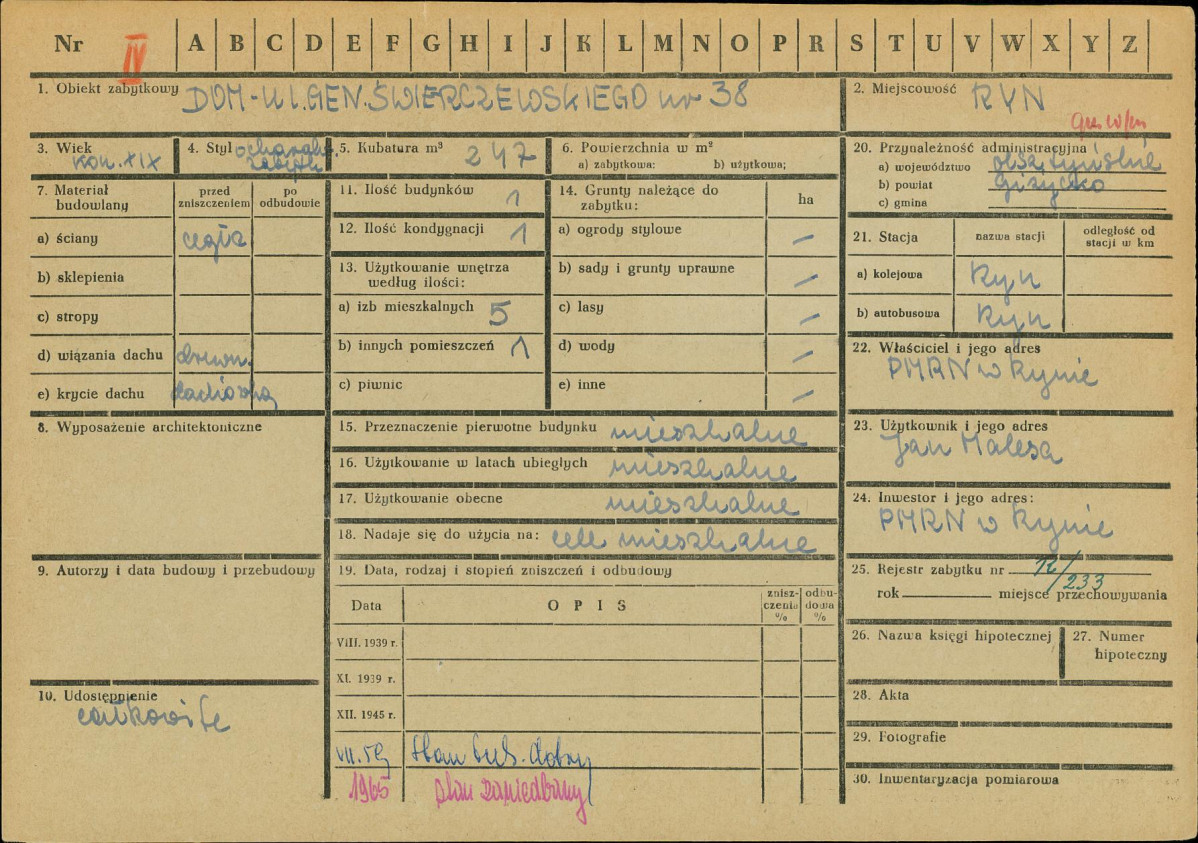 Nr IV A B C D E F G H I J K L M N O P R S T U V W X Y Z
1. Obiekt zabytkowy DOM - UL. GEN. ŚWIERCZEWSKIEGO nr 38
2. Miejscowość RYN
3. Wiek kon. XIX
4. Styl
5. Kubatura m³ 247
6. Powierzchnia w m²
a) zabytkowa: b) użytkowa;
7. Materiał budowlany
przed zniszczeniem
po odbudowie
a) ściany cegła
b) sklepienia
c) stropy
d) wiązania dachu drewn.
e) krycie dachu dachówką
8. Wyposażenie architektoniczne
9. Autorzy i data budowy i przebudowy
10. Udostępnienie
całkowite
11. Ilość budynków 1
12. Ilość kondygnacji 1
13. Użytkowanie wnętrza
według ilości:
a) izb mieszkalnych 5
b) innych pomieszczeń 1
c) piwnic
14. Grunty należące do
zabytku:
ha
a) ogrody stylowe —
b) sady i grunty uprawne —
c) lasy —
d) wody —
e) inne —
15. Przeznaczenie pierwotne budynku mieszkalne
16. Użytkowanie w latach ubiegłych mieszkalne
17. Użytkowanie obecne mieszkalne
18. Nadaje się do użycia na: cele mieszkalne
19. Data, rodzaj i stopień zniszczeń i odbudowy
Data
OPIS
znisz-
czenia
%
odbu-
dowa
%
VIII. 1939 r.
XI. 1939 r.
XII. 1945 r.
VII. 59 Stan bud. dobry
1965 stan zaniedbany
20. Przynależność administracyjna
a) województwo olsztyńskie
b) powiat Giżycko
c) gmina
21. Stacja
nazwa stacji
odległość od
stacji w km
a) kolejowa Ryn
b) autobusowa Ryn
22. Właściciel i jego adres
PMRN w Rynie
23. Użytkownik i jego adres
Jan Malesa
24. Inwestor i jego adres:
PMRN w Rynie
25. Rejestr zabytku nr 12/233
rok miejsce przechowywania
26. Nazwa księgi hipotecznej
27. Numer
hipoteczny
28. Akta
29. Fotografie
30. Inwentaryzacja pomiarowa